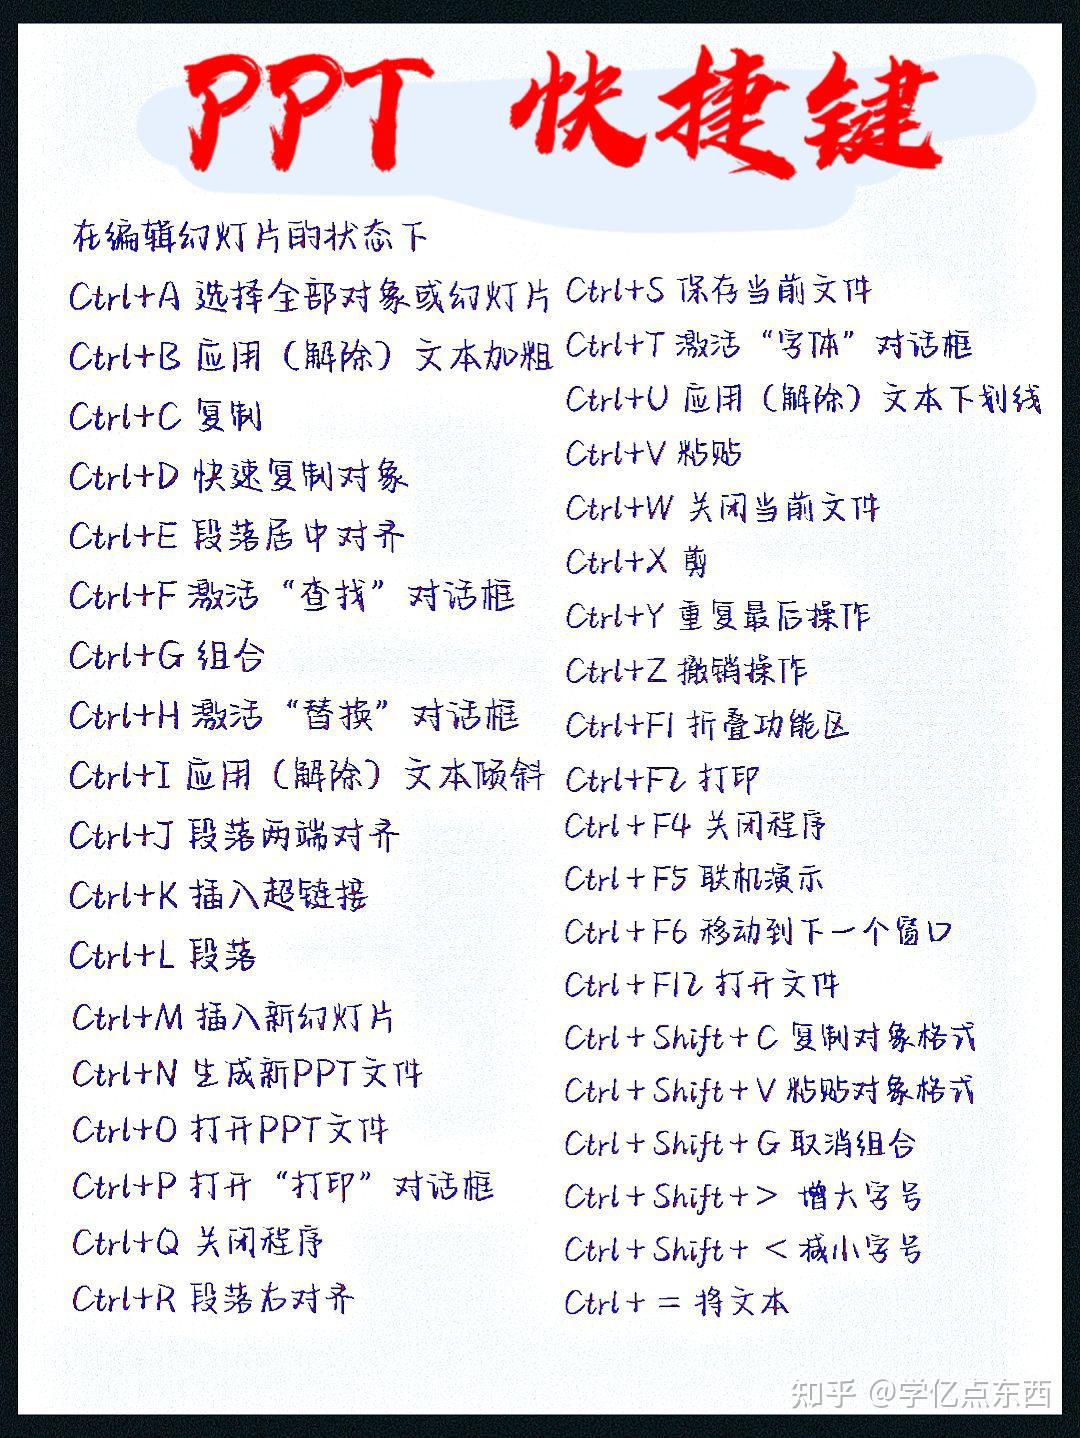 PPT 快捷键
在编辑幻灯片的状态下
Ctrl+A 选择全部对象或幻灯片
Ctrl+B 应用（解除）文本加粗
Ctrl+C 复制
Ctrl+D 快速复制对象
Ctrl+E 段落居中对齐
Ctrl+F 激活“查找”对话框
Ctrl+G 组合
Ctrl+H 激活“替换”对话框
Ctrl+I 应用（解除）文本倾斜
Ctrl+J 段落两端对齐
Ctrl+K 插入超链接
Ctrl+L 段落
Ctrl+M 插入新幻灯片
Ctrl+N 生成新PPT文件
Ctrl+O 打开PPT文件
Ctrl+P 打开“打印”对话框
Ctrl+Q 关闭程序
Ctrl+R 段落右对齐
Ctrl+S 保存当前文件
Ctrl+T 激活“字体”对话框
Ctrl+U 应用（解除）文本下划线
Ctrl+V 粘贴
Ctrl+W 关闭当前文件
Ctrl+X 剪
Ctrl+Y 重复最后操作
Ctrl+Z 撤销操作
Ctrl+F1 折叠功能区
Ctrl+F2 打印
Ctrl+F4 关闭程序
Ctrl+F5 联机演示
Ctrl+F6 移动到下一个窗口
Ctrl+F12 打开文件
Ctrl+Shift+C 复制对象格式
Ctrl+Shift+V 粘贴对象格式
Ctrl+Shift+G 取消组合
Ctrl+Shift+> 增大字号
Ctrl+Shift+<减小字号
Ctrl+=将文本
知乎 @学亿点东西